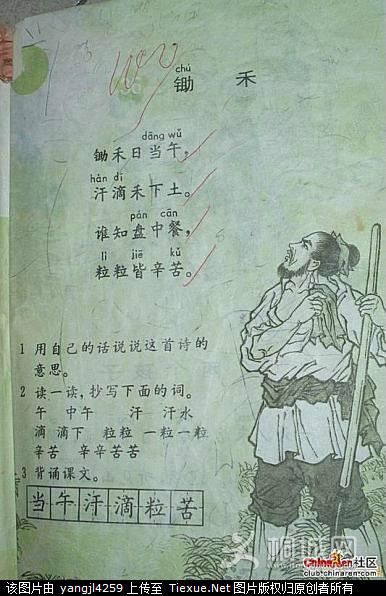 100
chú
锄 禾
dāng wǔ
锄禾日当午。
hàn dī
汗滴禾下土。
pán cān
谁知盘中餐，
lì jiē kǔ
粒粒皆辛苦。
1 用自己的话说说这首诗的
意思。
2 读一读，抄写下面的词。
午 中午 汗 汗水
滴 滴下 粒粒 一粒一粒
辛苦 辛辛苦苦
3 背诵课文。
当午汗滴粒苦
桐城网
ChinaRen社区
club.chinaren.com
该图片由 yangjl4259 上传至 Tiexue.Net 图片版权归原创者所有